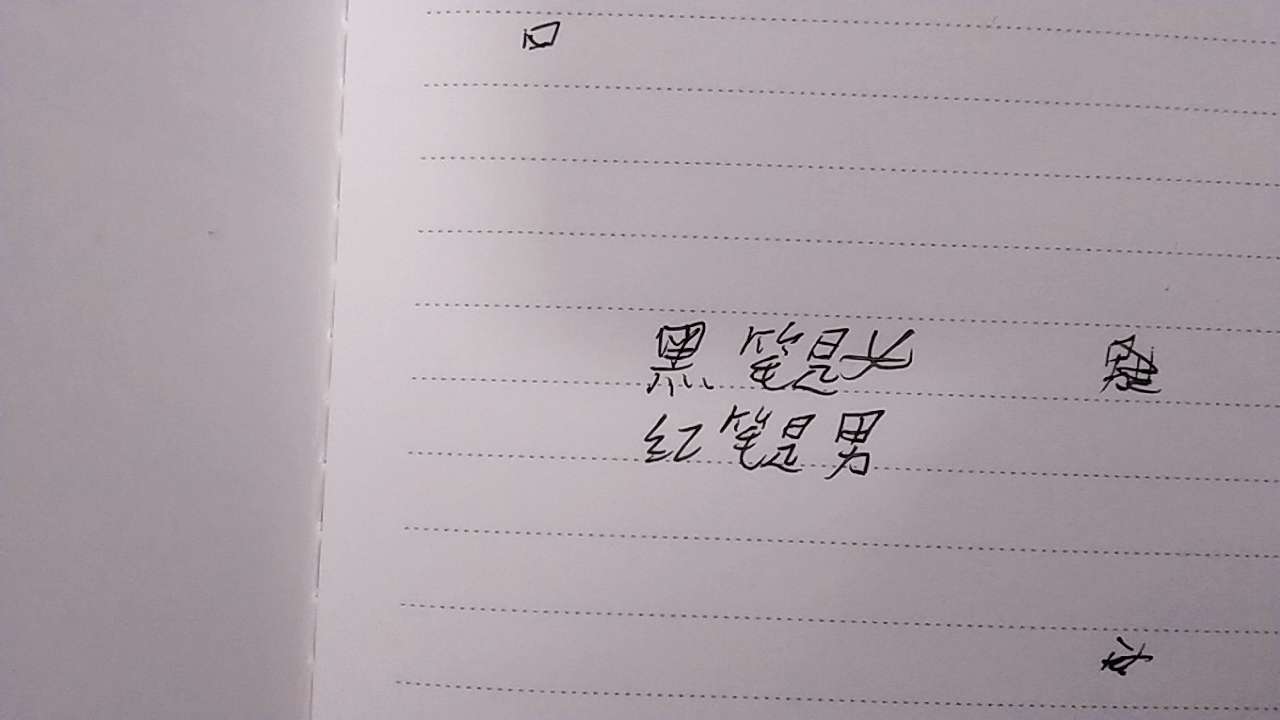 口
黑笔是女
红笔是男